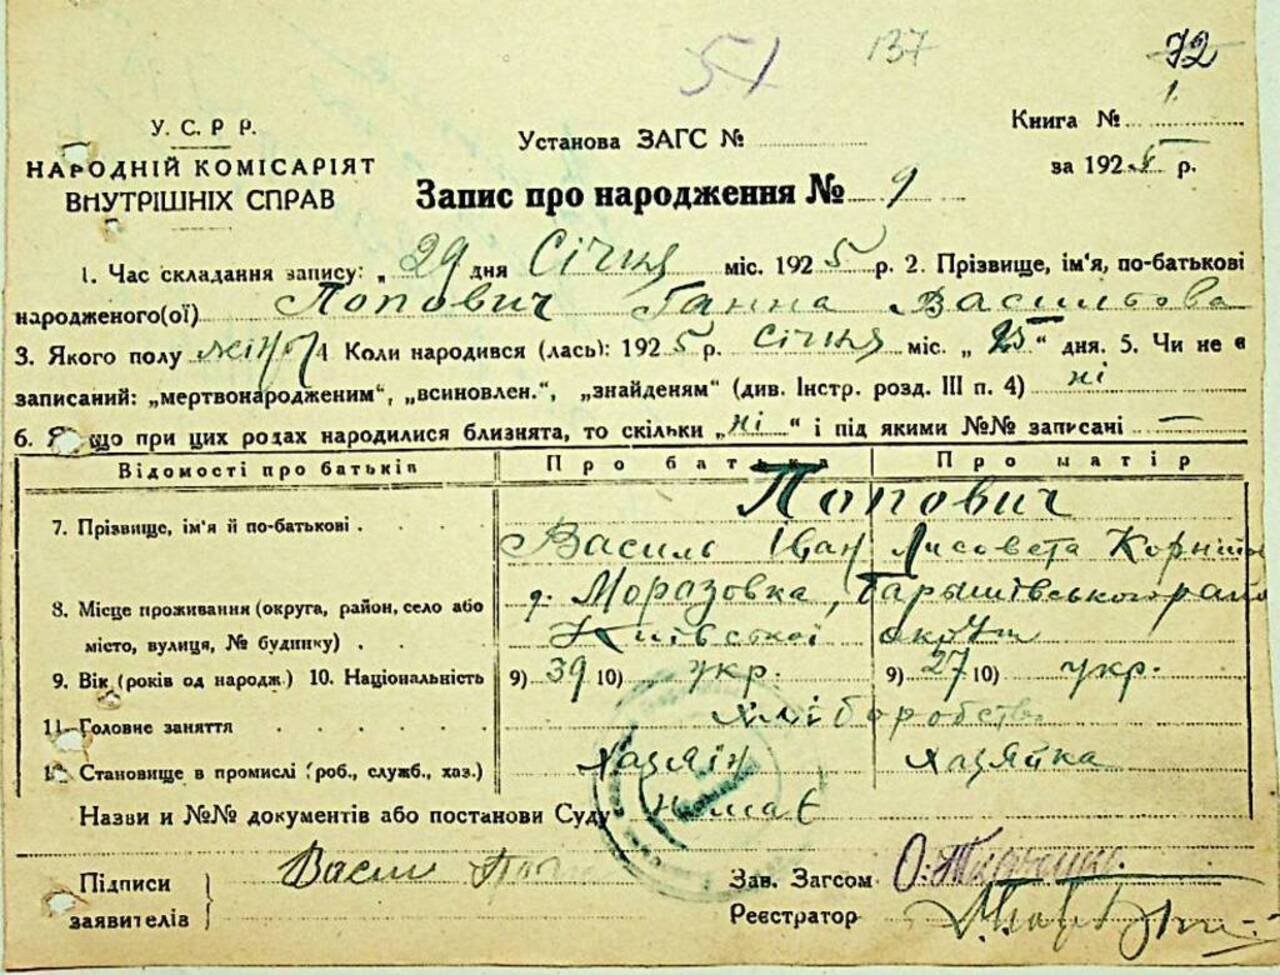 51 137 72
У. С. Р Р.
НАРОДНІЙ КОМІСАРІЯТ
ВНУТРІШНІХ СПРАВ
Установа ЗАГС №
Книга № 1.
за 1925 р.
Запис про народження № 9
1. Час складання запису: „ 29 дня Січня міс. 1925 р. 2. Прізвище, ім'я, по-батькові
народженого(ої) Попович Ганна Васильова
3. Якого полу жіноч 4 Коли народився (лась): 1925 р. січня міс. „ 25 “ дня. 5. Чи не є
записаний: „мертвонародженим“, „всиновлен.“, „знайденям“ (див. Інстр. розд. III п. 4) ні
6. Якщо при цих родах народилися близнята, то скільки „ ні “ і під якими №№ записані —
Відомості про батьків Про батька Про матір
Попович
7. Прізвище, ім'я й по-батькові . Василь Іван Лисовета
8. Місце проживання (округа, район, село або д. Морозовка, Баришівського
місто, вулиця, № будинку) . Київської округи
9. Вік (років од народж) 10. Національність 9) 39 10) укр. 9) 27 10) укр.
11. Головне заняття хліборобство
12. Становище в промислі (роб., служб., хаз.) хазяін хазяйка
Назви и №№ документів або постанови Суду немає
Підписи
заявителів
Васил
Зав. Загсом
Реєстратор